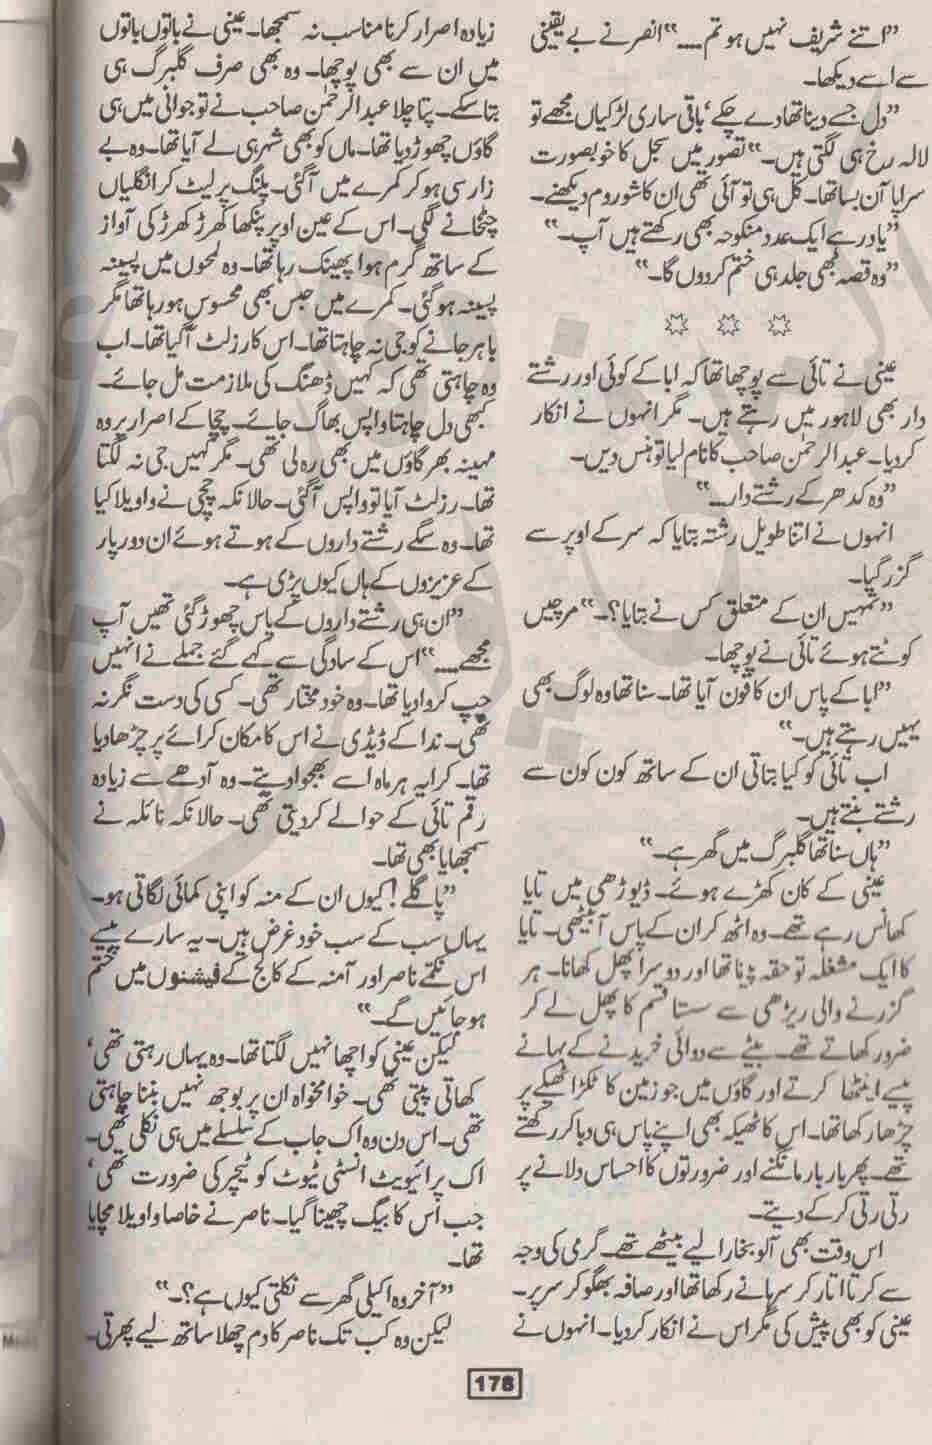 ”اتنے شریف نہیں ہو تم ....“ انصر نے بے یقینی
سے اسے دیکھا۔
”دل جسے دینا تھا دے چکے‘ باقی ساری لڑکیاں مجھے تو
لالہ رخ ہی لگتی ہیں۔“ تصور میں سجل کا خوبصورت
سراپا آن بسا تھا۔ کل ہی تو آئی تھی ان کا شوروم دیکھنے۔
”یاد رہے ایک عدد منکوحہ بھی رکھتے ہیں آپ۔“
”وہ قصہ بھی جلد ہی ختم کردوں گا۔“
عینی نے تائی سے پوچھا تھا کہ ابا کے کوئی اور رشتے
دار بھی لاہور میں رہتے ہیں۔ مگر انہوں نے انکار
کردیا۔ عبدالرحمٰن صاحب کا نام لیا تو ہنس دیں۔
”وہ کدھر کے رشتے دار...“
انہوں نے اتنا طویل رشتہ بتایا کہ سر کے اوپر سے
گزر گیا۔
”تمہیں ان کے متعلق کس نے بتایا؟۔“ مرچیں
کوٹتے ہوئے تائی نے پوچھا۔
”ابا کے پاس ان کا فون آیا تھا۔ سنا تھا وہ لوگ بھی
یہیں رہتے ہیں۔“
اب تائی کو کیا بتاتی ان کے ساتھ کون کون سے
رشتے بنتے ہیں۔
”ہاں سنا تھا گلبرگ میں گھر ہے۔“
عینی کے کان کھڑے ہوئے۔ ڈیوڑھی میں تایا
کھانس رہے تھے۔ وہ اٹھ کر ان کے پاس آبیٹھی۔ تایا
کا ایک مشغلہ تو حقہ پینا تھا اور دوسرا پھل کھانا۔ ہر
گزرنے والی ریڑھی سے سستا قسم کا پھل لے کر
ضرور کھاتے تھے۔ بیٹے سے دوائی خریدنے کے بہانے
پیسے اینٹھا کرتے اور گاؤں میں جو زمین کا ٹکڑا ٹھیکے پر
چڑھا رکھا تھا۔ اس کا ٹھیکہ بھی اپنے پاس ہی دبا کر رکھتے
تھے۔ پھر بار بار مانگنے اور ضرورتوں کا احساس دلانے پر
رتی رتی کرکے دیتے۔
اس وقت بھی آلو بخارا لیے بیٹھے تھے۔ گرمی کی وجہ
سے کرتا اتار کر سرہانے رکھا تھا اور صافہ بھگو کر سر پر۔
عینی کو بھی پیش کی مگر اس نے انکار کردیا۔ انہوں نے
زیادہ اصرار کرنا مناسب نہ سمجھا۔ عینی نے باتوں باتوں
میں ان سے بھی پوچھا۔ وہ بھی صرف گلبرگ ہی
بتا سکے۔ پتا چلا عبدالرحمٰن صاحب نے تو جوانی میں ہی
گاؤں چھوڑ دیا تھا۔ ماں کو بھی شہر ہی لے آیا تھا۔ وہ بے
زار سی ہو کر کمرے میں آگئی۔ پلنگ پر لیٹ کر انگلیاں
چٹخانے لگی۔ اس کے عین اوپر پنکھا کھرڑ کھرڑ کی آواز
کے ساتھ گرم ہوا پھینک رہا تھا۔ وہ لمحوں میں پسینہ
پسینہ ہو گئی۔ کمرے میں حبس بھی محسوس ہو رہا تھا مگر
باہر جانے کو جی نہ چاہتا تھا۔ اس کا رزلٹ آگیا تھا۔ اب
وہ چاہتی تھی کہ کہیں ڈھنگ کی ملازمت مل جائے۔
کبھی دل چاہتا واپس بھاگ جائے۔ چچا کے اصرار پر وہ
مہینہ بھر گاؤں میں بھی رہ لی تھی۔ مگر کہیں جی نہ لگتا
تھا۔ رزلٹ آیا تو واپس آگئی۔ حالانکہ چچی نے واویلا کیا
تھا۔ وہ سگے رشتے داروں کے ہوتے ہوئے ان دور پار
کے عزیزوں کے ہاں کیوں پڑی ہے۔
”ان ہی رشتے داروں کے پاس چھوڑ گئی تھیں آپ
مجھے....“ اس کے سادگی سے کہے گئے جملے نے انہیں
چپ کروا دیا تھا۔ وہ خود مختار تھی۔ کسی کی دست نگر نہ
تھی۔ ندا کے ڈیڈی نے اس کا مکان کرائے پر چڑھا دیا
تھا۔ کرایہ ہر ماہ اسے بھجوا دیتے۔ وہ آدھے سے زیادہ
رقم تائی کے حوالے کر دیتی تھی۔ حالانکہ نائلہ نے
سمجھایا بھی تھا۔
”پاگلے! کیوں ان کے منہ کو اپنی کمائی لگاتی ہو۔
یہاں سب کے سب خود غرض ہیں۔ یہ سارے پیسے
اس نکمے ناصر اور آمنہ کے کالج کے فیشنوں میں ختم
ہو جائیں گے۔“
لیکن عینی کو اچھا نہیں لگتا تھا۔ وہ یہاں رہتی تھی‘
کھاتی پیتی تھی۔ خوامخواہ ان پر بوجھ نہیں بننا چاہتی
تھی۔ اس دن وہ اک جاب کے سلسلے میں ہی نکلی تھی۔
اک پرائیویٹ انسٹی ٹیوٹ کو ٹیچر کی ضرورت تھی‘
جب اس کا بیگ چھینا گیا۔ ناصر نے خاصا واویلا مچایا
تھا۔
”آخر وہ اکیلی گھر سے نکلتی کیوں ہے؟۔“
لیکن وہ کب تک ناصر کا دم چھلا ساتھ لیے پھرتی۔
178